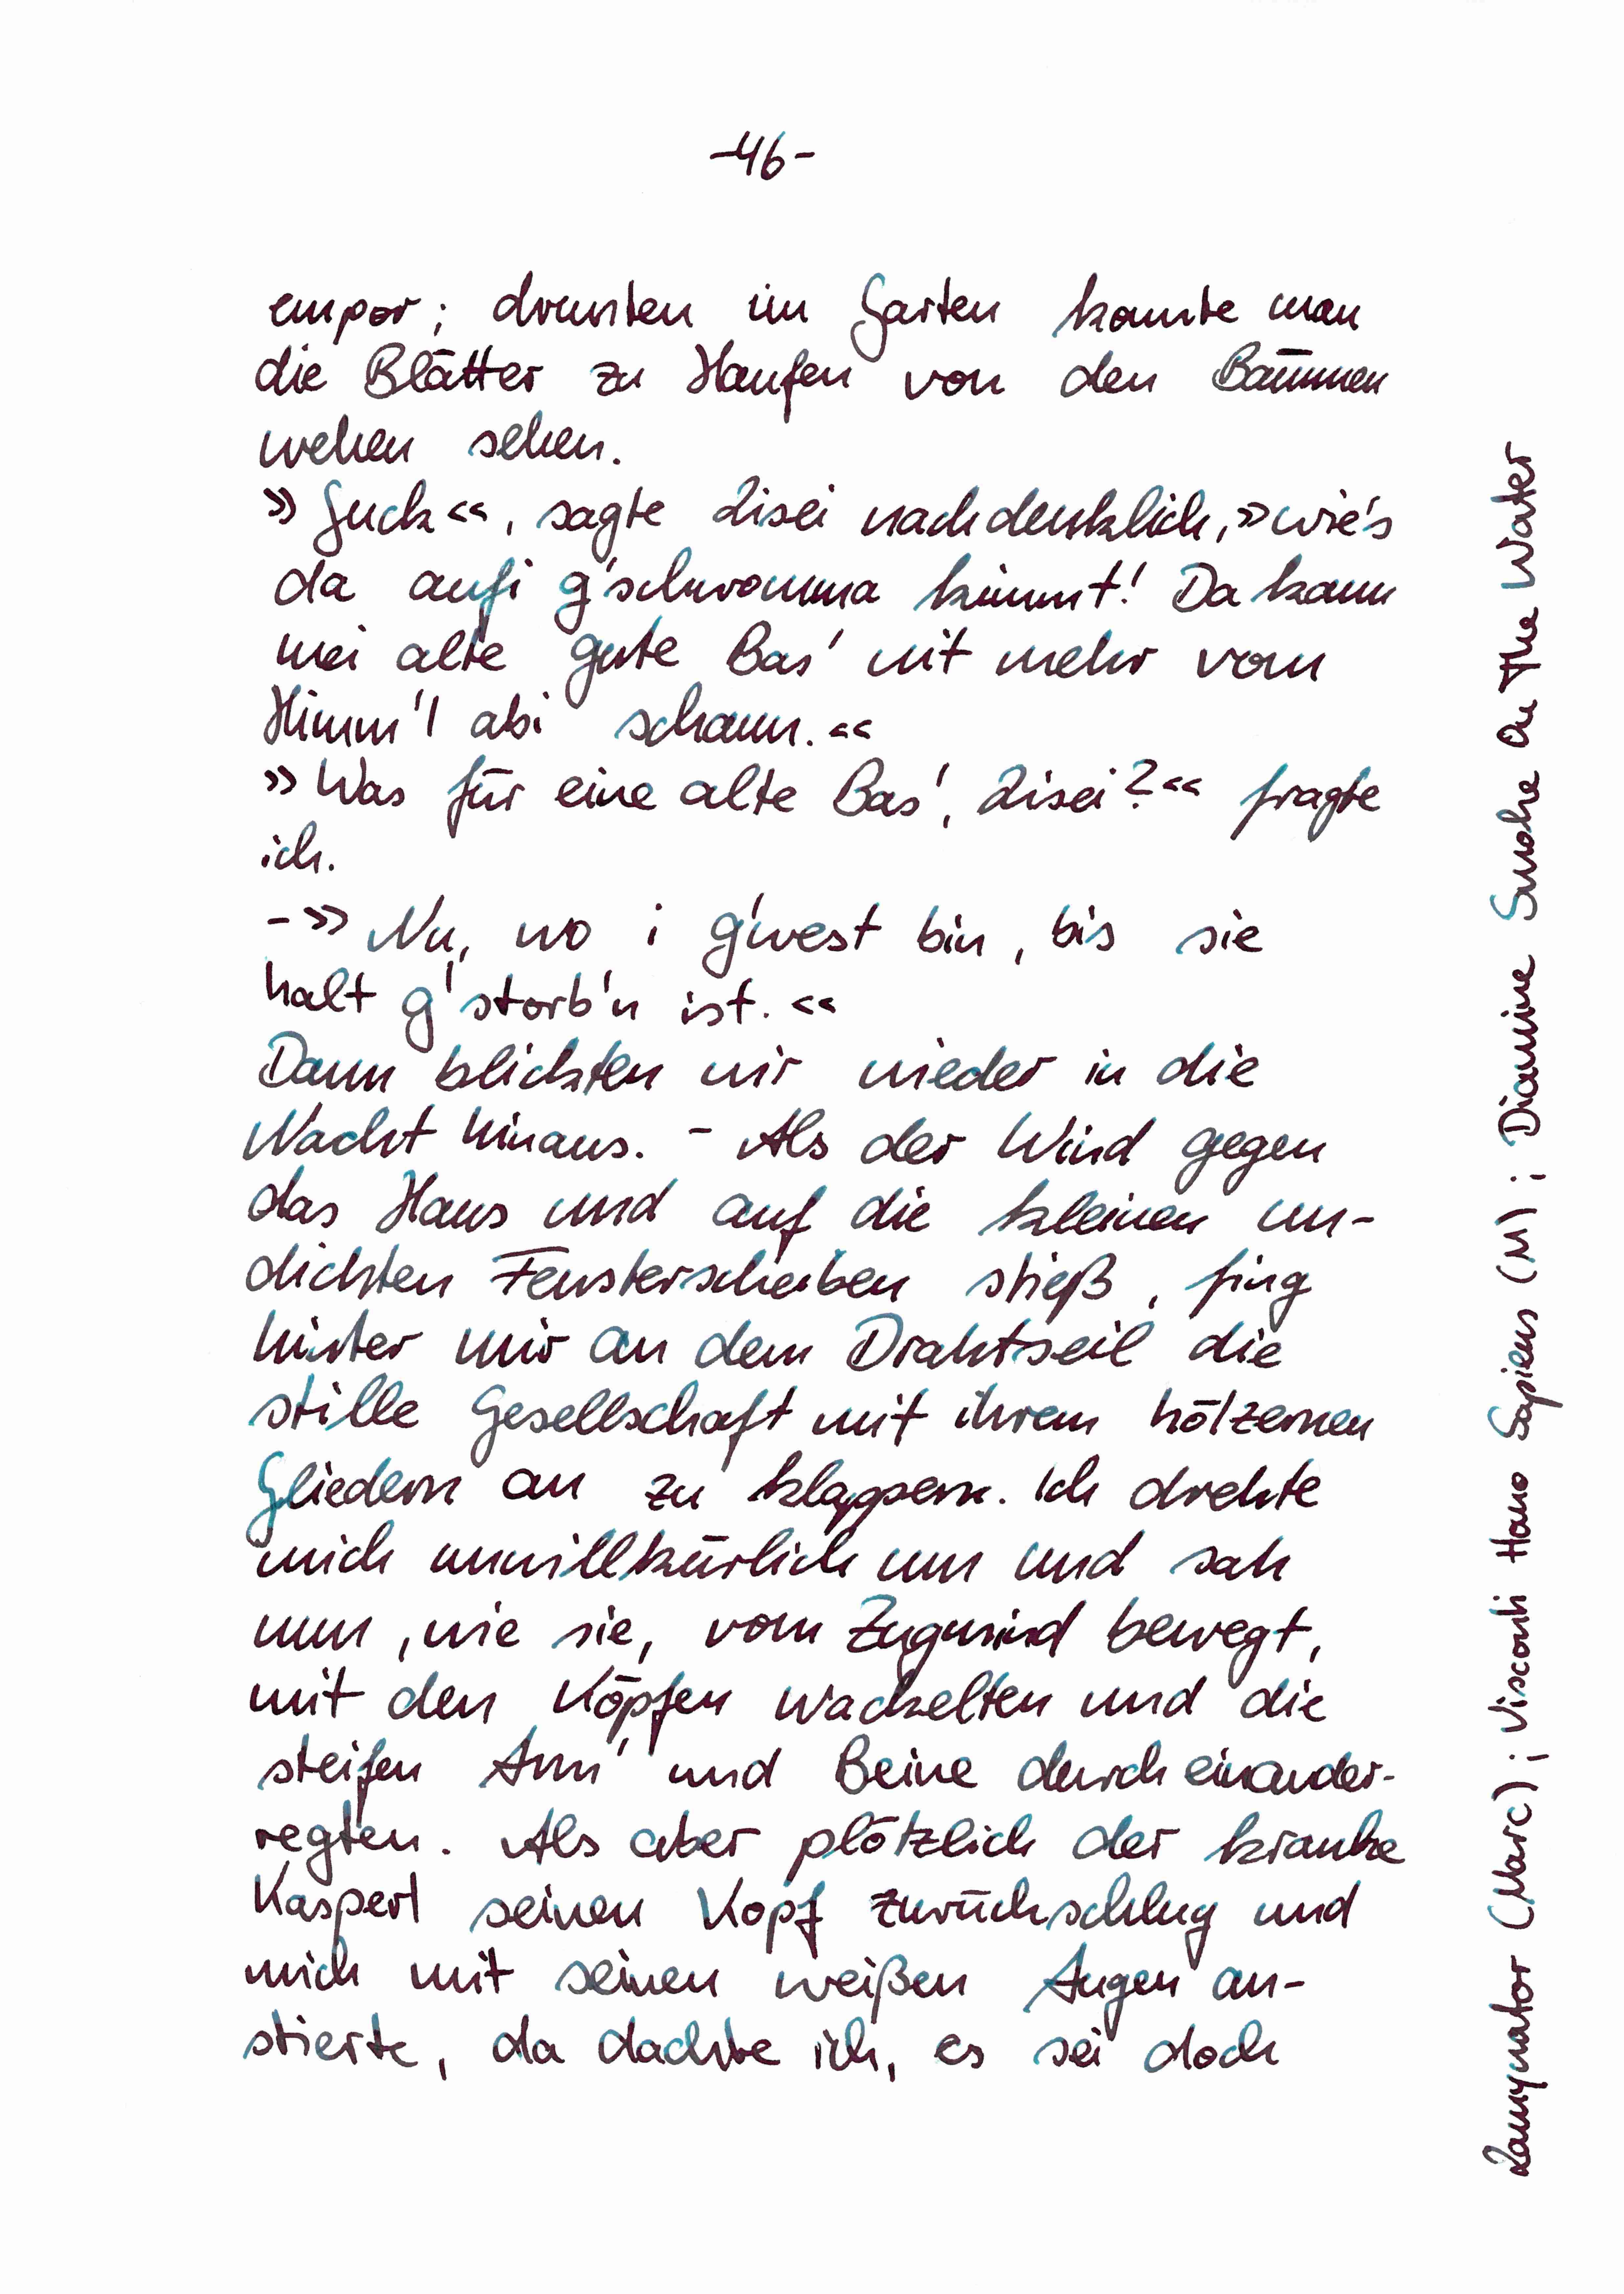 -46-
empor; drunten im Garten konnte man
die Blätter zu Haufen von den Bäumen
wehen sehen.
»Guck«, sagte Lisei nachdenklich, »wie's
da aufi g'schwomma kimmt! Da kann
mei alte gute Bas' nit mehr vom
Himm'l abi schaun.«
»Was für eine alte Bas', Lisei?« fragte
ich.
-» Nu, wo i g'west bin, bis sie
halt g'storb'n ist.«
Dann blickten wir wieder in die
Nacht hinaus. - Als der Wind gegen
das Haus und auf die kleinen un-
dichten Fensterscheiben stieß, fing
hinter mir an dem Drahtseil die
stille Gesellschaft mit ihren hölzernen
Gliedern an zu klappern. Ich drehte
mich unwillkürlich um und sah
nun, wie sie, vom Zugwind bewegt,
mit den Köpfen wackelten und die
steifen Arm' und Beine durcheinander-
regten. Als aber plötzlich der kranke
Kasperl seinen Kopf zurückschlug und
mich mit seinen weißen Augen an-
stierte, da dachte ich, es sei doch
Lamynator (Marc); Visconti Homo Sapiens (M); Diamine Smoke On The Water